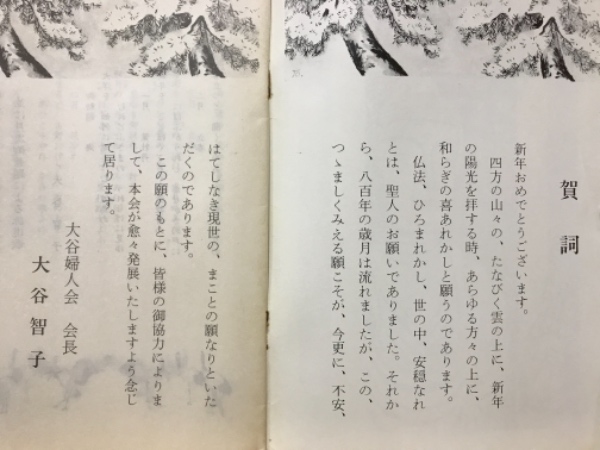 賀詞
新年おめでとうございます。
四方の山々の、たなびく雲の上に、新年
の陽光を拝する時、あらゆる方々の上に、
和らぎの喜あれかしと願うのであります。
仏法、ひろまれかし、世の中、安穏なれ
とは、聖人のお願いでありました。それか
ら、八百年の歳月は流れましたが、この、
つゝましくみえる願こそが、今更に、不安、
はてしなき現世の、まことの願なりといた
だくのであります。
この願のもとに、皆様の御協力によりま
して、本会が愈々発展いたしますよう念じ
て居ります。
大谷婦人会 会長
大谷智子